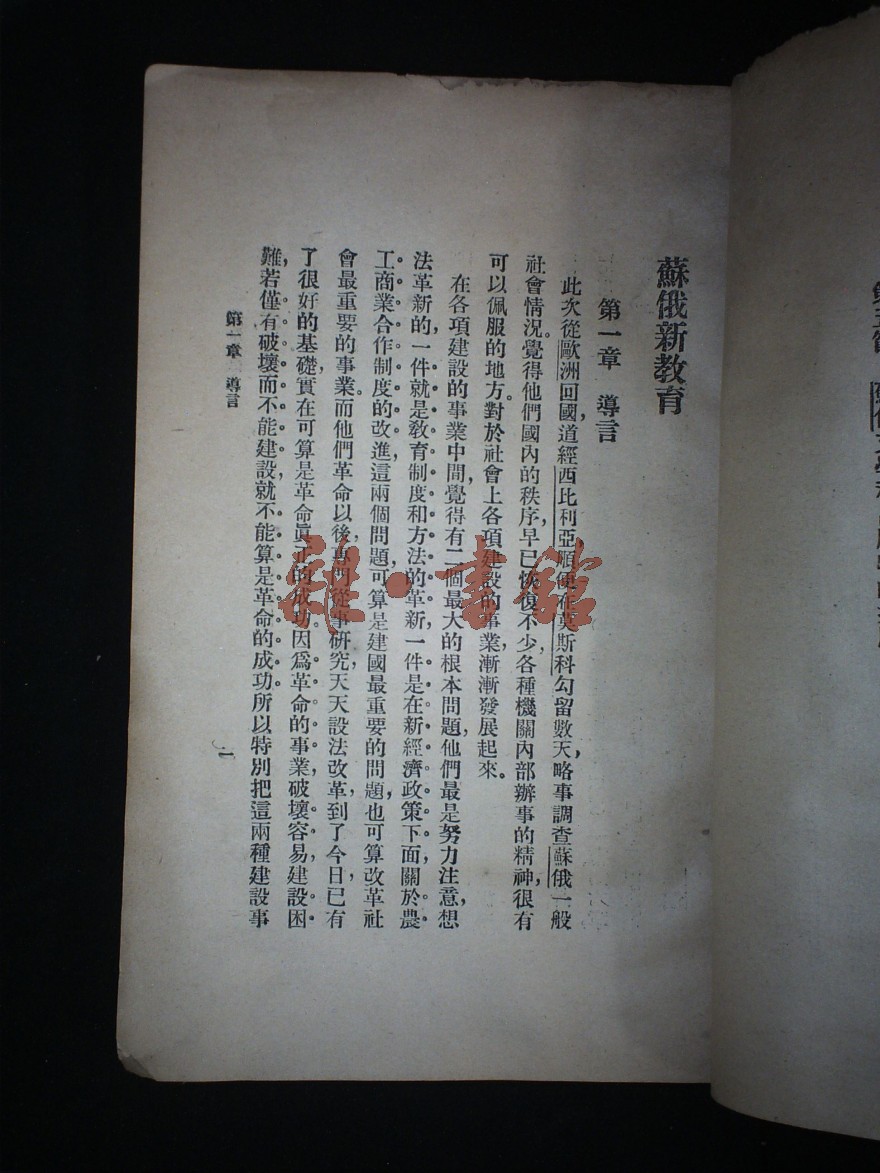 蘇俄新教育
第一章 導言
此次從歐洲回國,道經西比利亞,順便在莫斯科勾留數天,略事調查蘇俄一般
社會情況。覺得他們國內的秩序,早已恢復不少,各種機關內部辦事的精神,很有
可以佩服的地方。對於社會上各項建設的事業,漸漸發展起來。
在各項建設的事業中間,覺得有二個最大的根本問題,他們最是努力注意,想
法革新的,一件就是敎育制度和方法的革新,一件是在新經濟政策下面,關於農
工商業合作制度的改進,這兩個問題,可算是建國最重要的問題,也可算改革社
會最重要的事業。而他們革命以後,專門從事研究,天天設法改革,到了今日,已有
了很好的基礎,實在可算是革命眞正的成功。因爲革命的事業,破壞容易,建設困
難,若僅有破壞而不能建設,就不能算是革命的成功,所以特別把這兩種建設事
第一章 導言
一
雜·書館